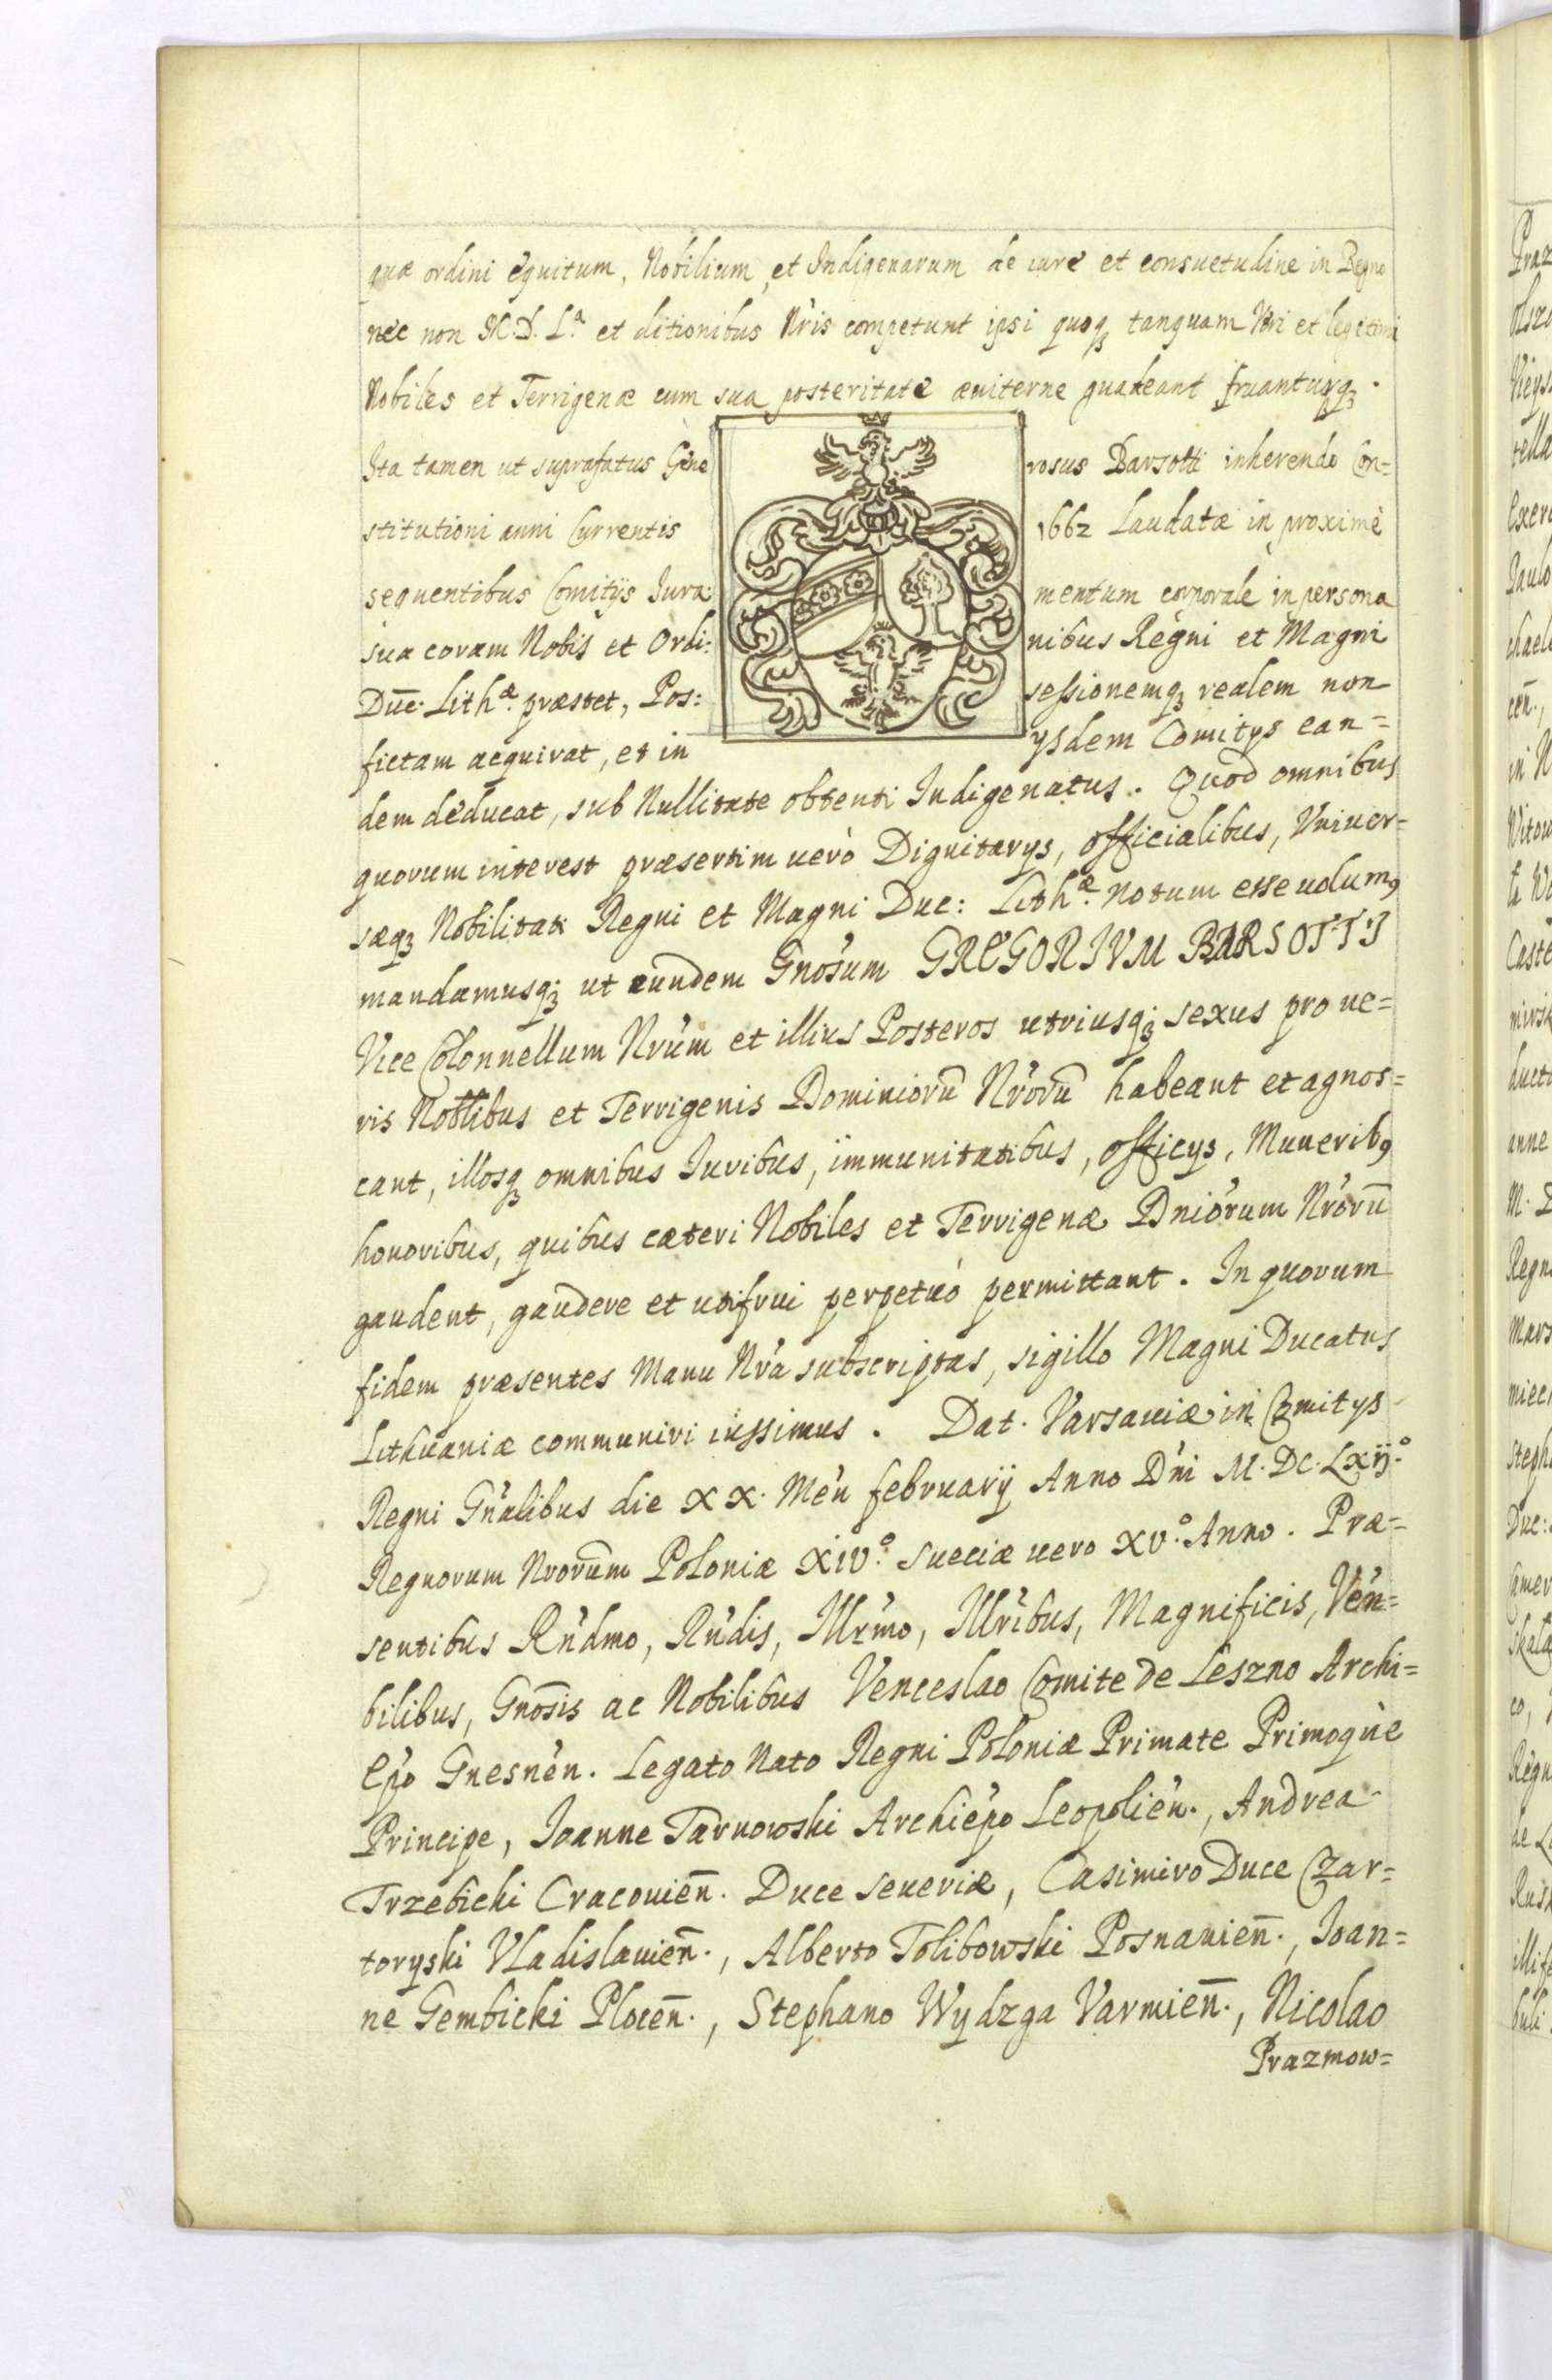 quæ ordini equitum, Nobilium, et Indigenarum de iure et consuetudine in Regno
nec non M. D. L.ᵃ et ditionibus Nr̃is competunt ipsi quoq₃ tanquam Veri et legitimi
Nobiles et Terrigenæ cum sua posteritate æviterne guadeant fruanturq₃.
Ita tamen ut suprafatus Gene rosus Barsotti inherendo Con=
stitutioni anni Currentis 1662 Laudatæ in proximè
sequentibus Comitÿs Iura: mentum corporale in persona
sua coram Nobis et Ordi: nibus Regni et Magni
Duc̄. Lithᵃᵉ. præstet, Pos: sessionemq₃ realem non
fictam acquirat, et in ysdem Comitys ean=
dem deducat, sub Nullitate obtenti Indigenatus. Quod omnibus
quorum interest præsertim uerò Dignitarys, Officialibus, Vniuer=
sæq₃ Nobilitati Regni et Magni Duc: Lithᵃᵉ. Notum esse uolumꝰ
mandamusq₃ ut eundem Gnosum GREGORIVM BARSOTTI
Vice Colonnellum Nrum et illius Posteros utriusq₃ sexus pro ue=
ris Nobilibus et Terrigenis Dominiorū Nrorū habeant et agnos=
cant, illosq₃ omnibus Iuribus, immunitatibus, officys, Muneribꝰ
honoribus, quibus cæteri Nobiles et Terrigenæ Dniorum Nrorū
gaudent, gaudere et utifrui perpetuò permittant. In quorum
fidem præsentes Manu Nra subscriptas, sigillo Magni Ducatus
Lithuaniæ communiri iussimus. Dat. Varsauiæ in Comitys
Regni Gnalibus die XX. Men februarÿ Anno Dni M. DC. LXIJ.°
Regnorum Nrorum Poloniæ XIV.° Sueciæ uero XV.° Anno. Præ=
sentibus Rndmo, Rndis, Illrmo, Illribus, Magnificis, Ven=
bilibus, Gnosis ac Nobilibus Venceslao Comite de Leszno Archi=
Epo Gnesnen. Legato Nato Regni Poloniæ Primate Primoque
Principe, Ioanne Tarnowski Archiepo Leopolien., Andrea
Trzebicki Cracouien̄. Duce Seueriæ, Casimiro Duce Czar=
toryski Vladislauien̄., Alberto Tolibowski Posnanien̄., Ioan=
ne Gembicki Plocen̄., Stephano Wydzga Varmien̄., Nicolao
Prazmow=